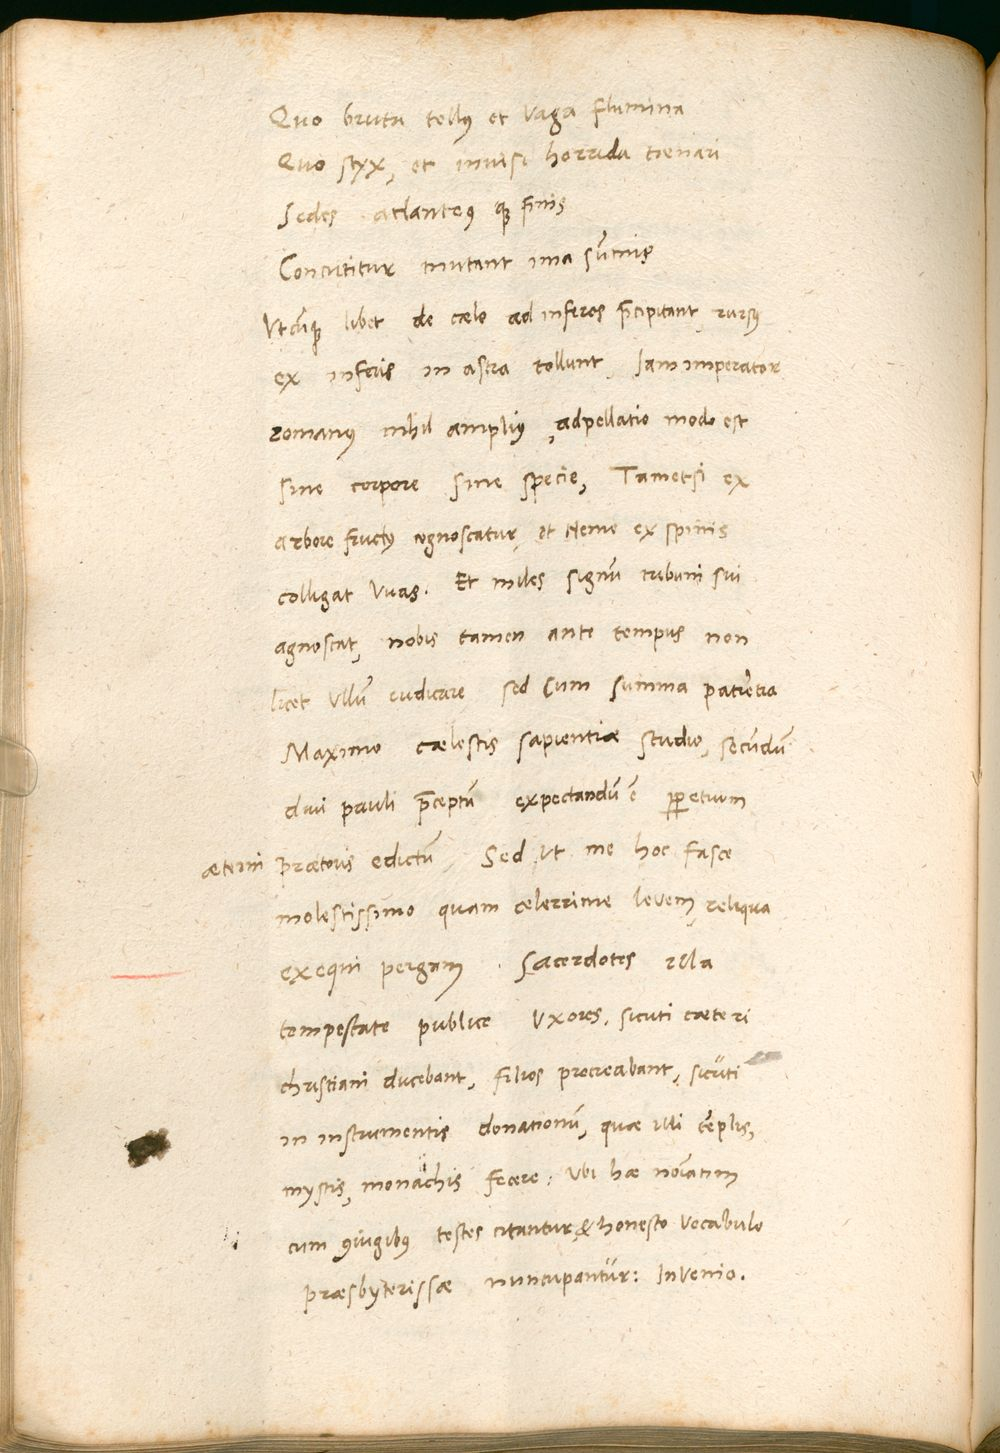 Quo bruta tellꝰ et vaga flumina
Quo styx, et inuisi horrida tænari
Sedes atlanteꝰ qꝫ finis
Concutitur mutant ima sum̄is
Vtcūqꝫ libet de cælo ad inferos p̄cipitant, rursꝰ
ex inferis in astra tollunt, Iam imperator
romanꝰ nihil ampliꝰ, adpellatio modo est
sine corpore sine specie, Tametsi ex
arbore fructꝰ cognoscatur, et Nemo ex spinis
colligat Vuas. Et miles signū tribuni sui
agnoscat, nobis tamen ante tempus non
licet Vllū iudicare sed Cum summa patiētia
Maximo cælestis sapientiæ studio, secundū
diui pauli p̄ceptū expectandū ē ꝑpetuum
æterni prætoris edictū, Sed Vt me hoc fasce
molestissimo quam celerrime levem, reliqua
exequi pergam. Sacerdotes illa
tempestate publice Vxores, sicuti cæteri
christiani ducebant, filios procreabant, sicuti
in instrumentis donationū, quæ illi tēplis,
mystis, monachis fecere: Vbi hæ noīatim
cum ꝯiugibꝰ testes citantur, & honesto Vocabulo
præsbyterissæ nuncupantur: InVenio.